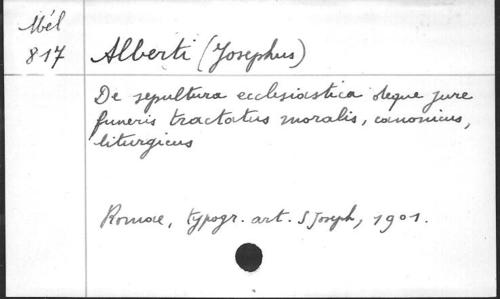 Mél
817
Alberti (Josephus)
De sepultura ecclesiastica deque jure
funeris tractatus moralis, canonicus,
liturgicus
Romae, typogr. art. S Joseph, 1901.